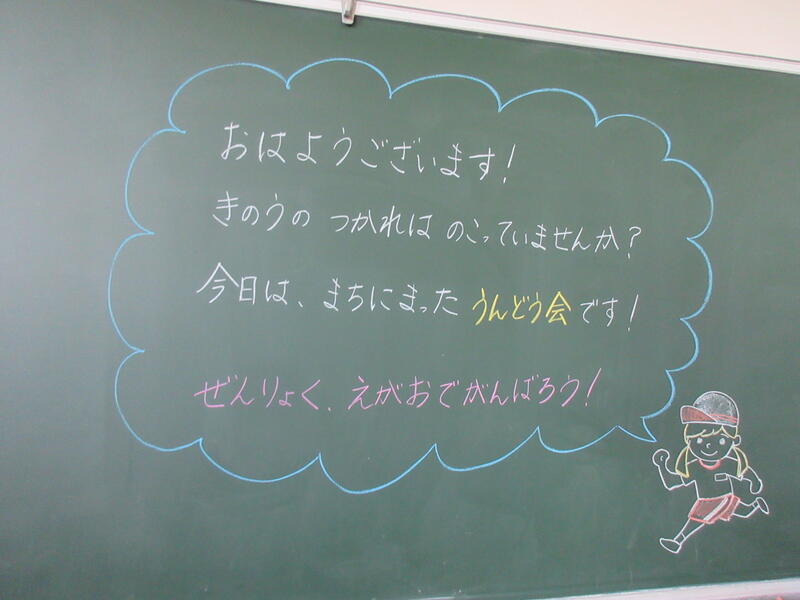 おはようございます!
きのうの つかれは のこっていませんか?
今日は、まちにまった うんどう会です!
ぜんりょく、えがおでがんばろう!